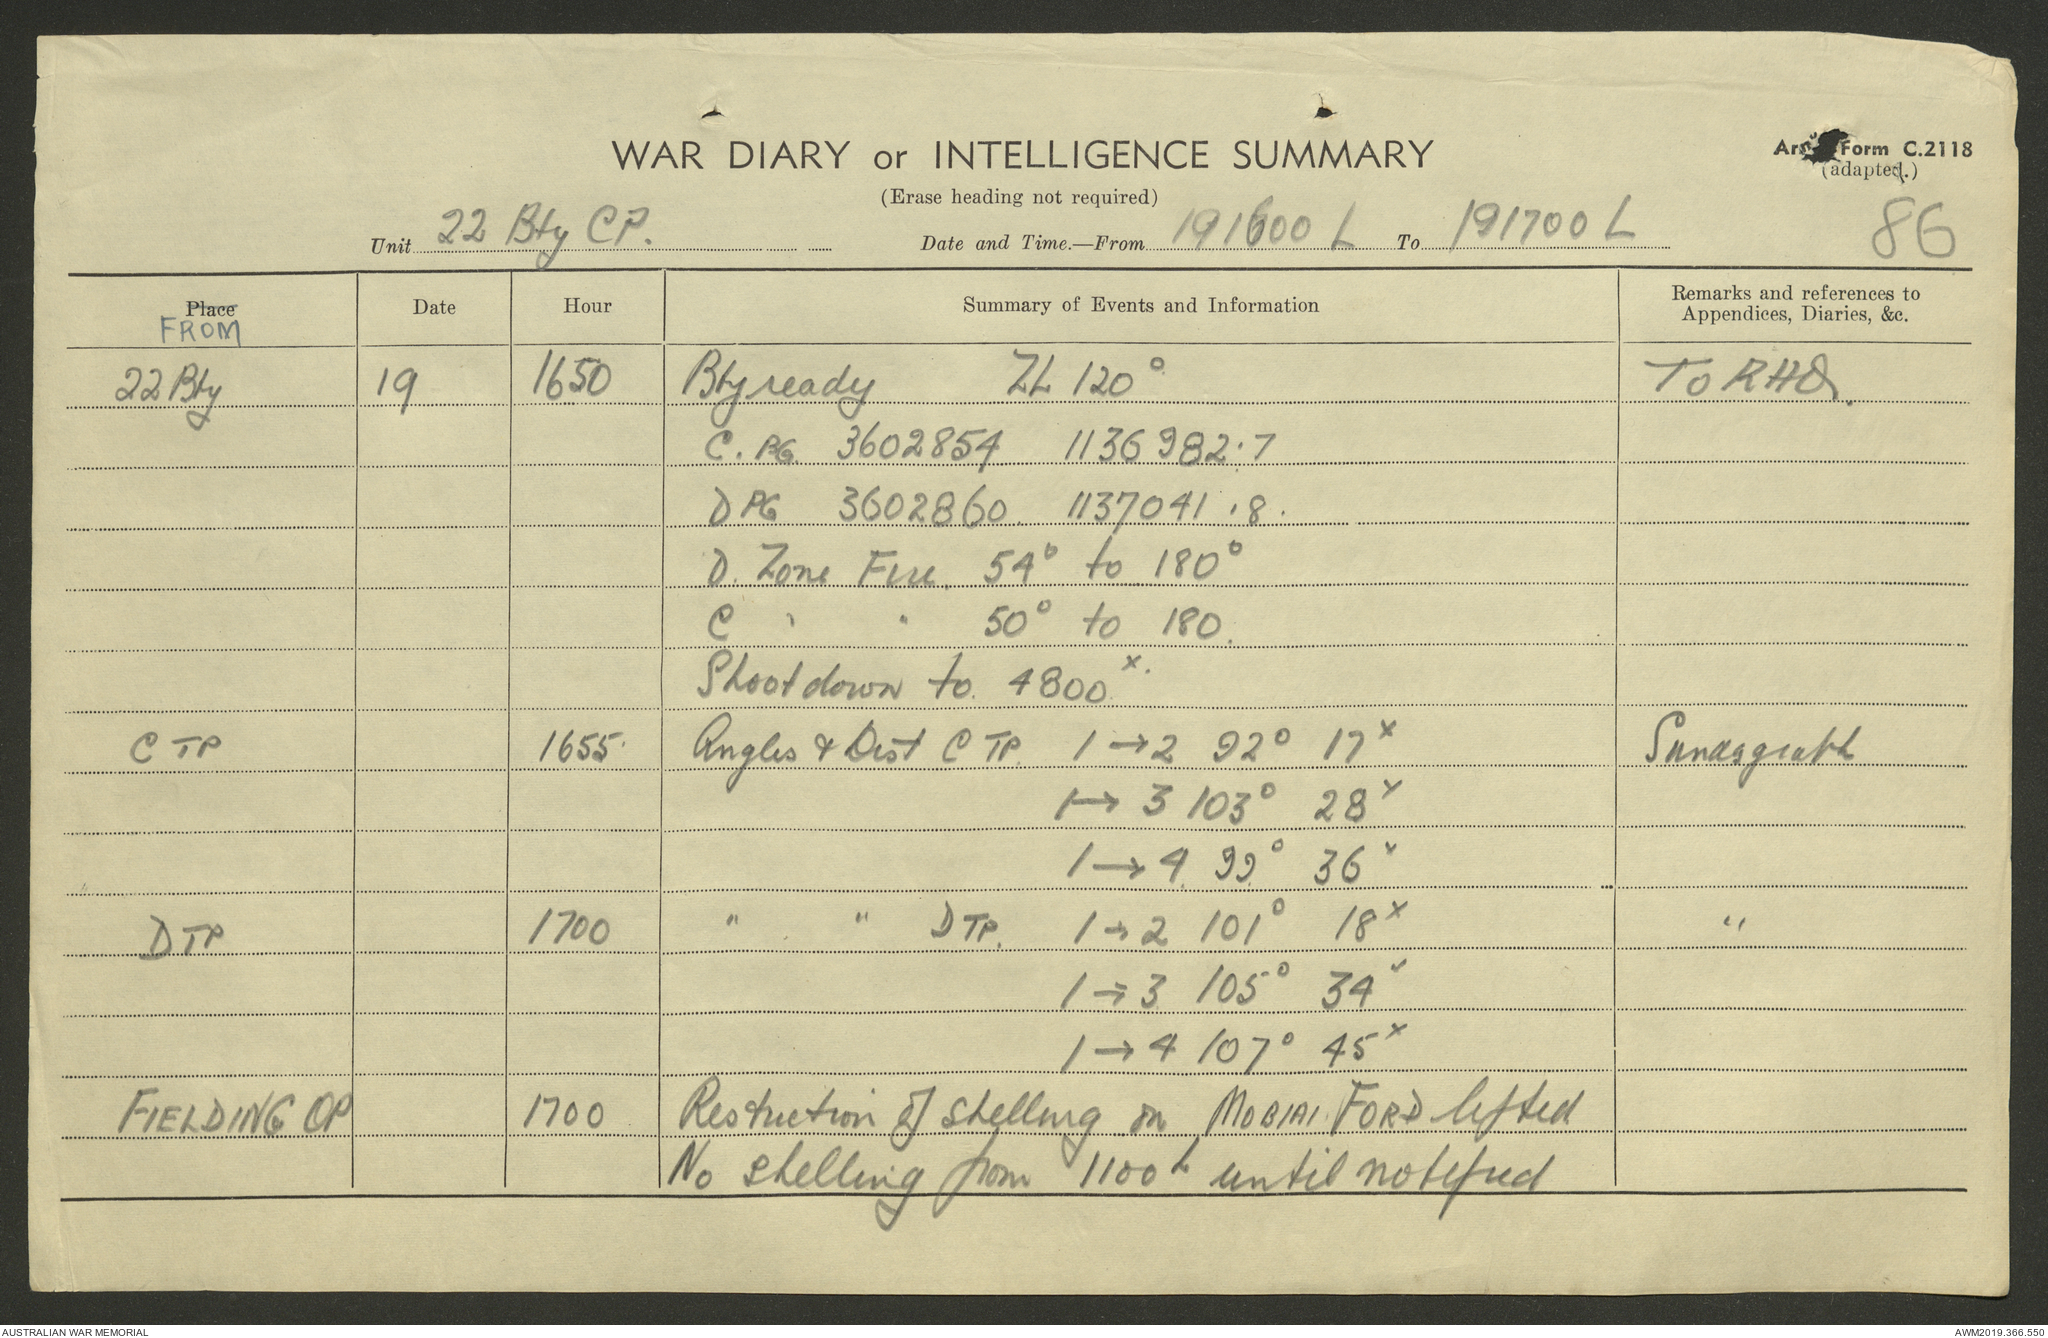 WAR DIARY or INTELLIGENCE SUMMARY
(Erase heading not required)
Form C.2118
(adapted.)
86
Unit 22 Bty CP. Date and Time.—From 191600 L To 191700 L
Place Date Hour Summary of Events and Information Remarks and references to Appendices, Diaries, &c.
FROM
22 Bty 19 1650 Bty ready ZL 120° To RHQ.
C. PG. 3602854 1136982.7
D PG 3602860. 1137041.8.
D. Zone Fire. 54° to 180°
C " " 50° to 180.
Shoot down to. 4800 x.
C TP 1655. Angles & Dist C TP. 1→2 92° 17 x
1→3 103° 28 x
1→4. 99° 36 x
D TP 1700 " " D TP. 1→2 101° 18 x "
1→3 105° 34 x
1→4 107° 45 x
FIELDING OP 1700 Restruction of shelling on MOBIAI FORD lifted
No shelling from 1100 L until notified
AUSTRALIAN WAR MEMORIAL
AWM2019.366.550